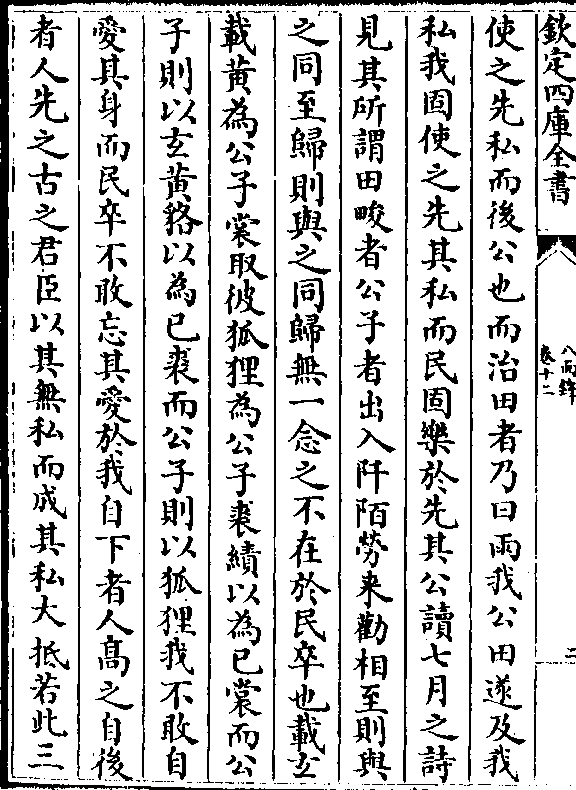 欽定四庫全書
八面鋒
卷十二
二
使之先私而後公也而治田者乃曰雨我公田遂及我
私我固使之先其私而民固樂於先其公讀七月之詩
見其所謂田畯者公子者出入阡陌勞来勸相至則與
之同至歸則與之同歸無一念之不在於民卒也載𤣥
載黄為公子裳取彼狐狸為公子裘績以為已裳而公
子則以𤣥黄貉以為已裘而公子則以狐狸我不敢自
愛其身而民卒不敢忘其愛於我自下者人髙之自後
者人先之古之君臣以其無私而成其私大抵若此三